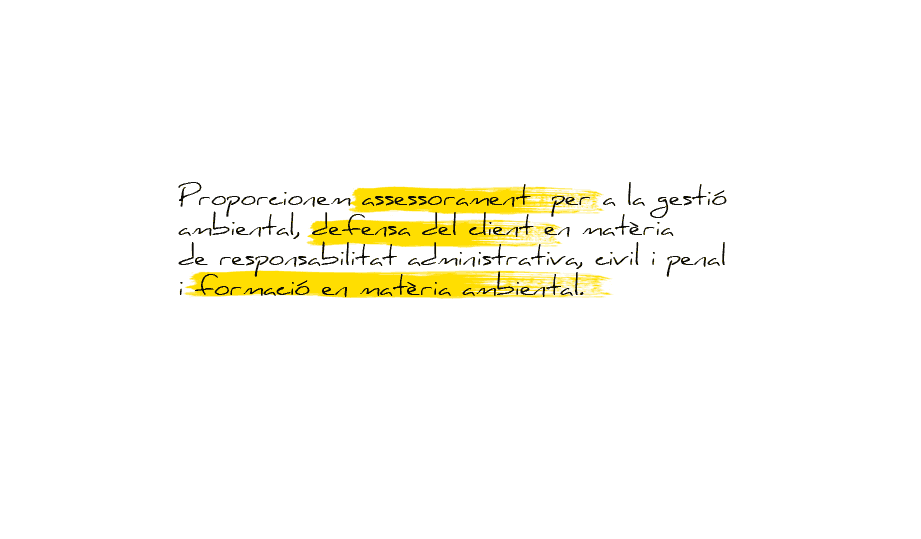 Proporcionem assessorament per a la gestió
ambiental, defensa del client en matèria
de responsabilitat administrativa, civil i penal
i formació en matèria ambiental.